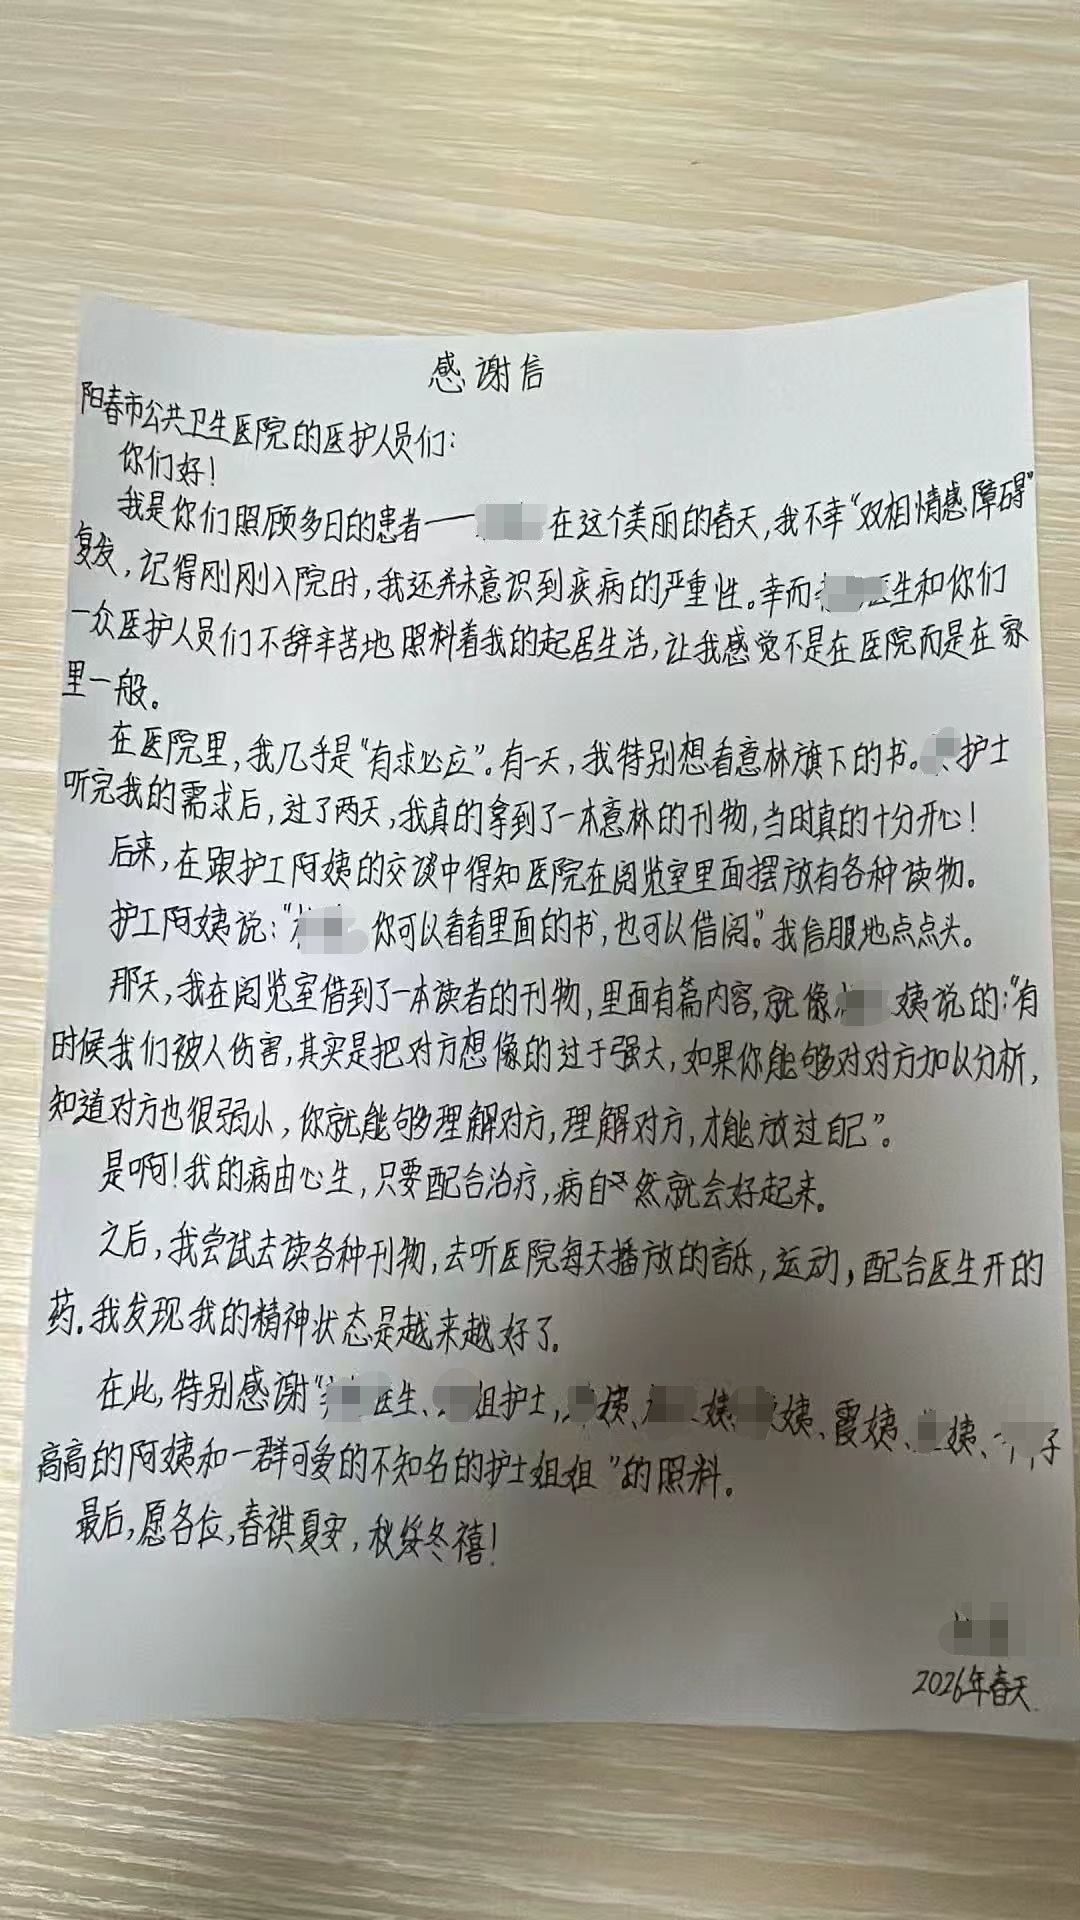 感谢信
阳春市公共卫生医院的医护人员们：
你们好！
我是你们照顾多日的患者——在这个美丽的春天，我不幸“双相情感障碍”
复发，记得刚刚入院时，我还并未意识到疾病的严重性。幸而医生和你们
一众医护人员们不辞辛苦地照料着我的起居生活，让我感觉不是在医院而是在家
里一般。
在医院里，我几乎是“有求必应”。有一天，我特别想看意林旗下的书。护士
听完我的需求后，过了两天，我真的拿到了一本意林的刊物，当时真的十分开心！
后来，在跟护工阿姨的交谈中得知医院在阅览室里面摆放有各种读物。
护工阿姨说：“你可以看看里面的书，也可以借阅。”我信服地点点头。
那天，我在阅览室借到了一本读者的刊物，里面有篇内容，就像姨说的：“有
时候我们被人伤害，其实是把对方想像的过于强大，如果你能够对对方加以分析，
知道对方也很弱小，你就能够理解对方，理解对方，才能放过自己”。
是啊！我的病由心生，只要配合治疗，病自然就会好起来。
之后，我尝试去读各种刊物，去听医院每天播放的音乐，运动，配合医生开的
药。我发现我的精神状态是越来越好了。
在此，特别感谢“医生、姐护士，姨、姨、姨、霞姨、姨、子
高高的阿姨和一群可爱的不知名的护士姐姐”的照料。
最后，愿各位，春祺夏安，秋绥冬禧！
2026年春天